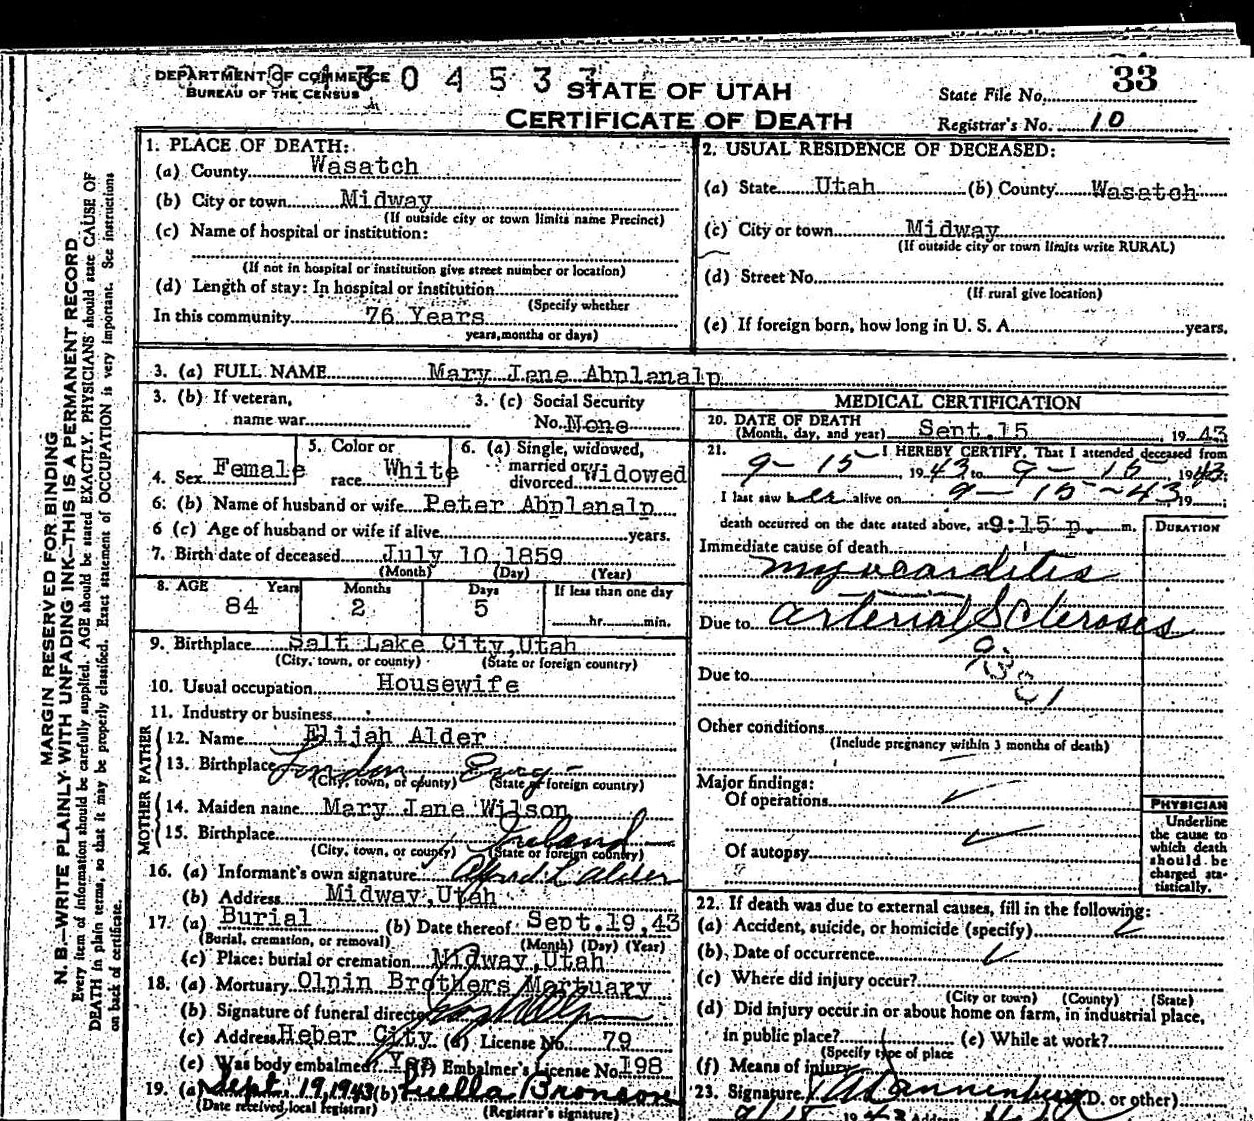 DEPARTMENT OF COMMERCE
BUREAU OF THE CENSUS
3 0 4 5 3
STATE OF UTAH
CERTIFICATE OF DEATH
State File No. 33
Registrar's No. 10
MARGIN RESERVED FOR BINDING
N. B.—WRITE PLAINLY WITH UNFADING INK—THIS IS A PERMANENT RECORD
Every item of information should be carefully supplied. AGE should be stated EXACTLY. PHYSICIANS should state CAUSE OF
DEATH in plain terms, so that it may be properly classified. Exact statement of OCCUPATION is very important. See instructions
on back of certificate.
1. PLACE OF DEATH:
(a) County Wasatch
(b) City or town Midway
(If outside city or town limits name Precinct)
(c) Name of hospital or institution:
(If not in hospital or institution give street number or location)
(d) Length of stay: In hospital or institution
(Specify whether
In this community 76 Years
years, months or days)
2. USUAL RESIDENCE OF DECEASED:
(a) State Utah (b) County Wasatch
(c) City or town Midway
(If outside city or town limits write RURAL)
(d) Street No.
(If rural give location)
(e) If foreign born, how long in U. S. A. years.
3. (a) FULL NAME Mary Jane Abplanalp
3. (b) If veteran,
name war
3. (c) Social Security
No. None
4. Sex Female
5. Color or
race White
6. (a) Single, widowed,
married or
divorced Widowed
6. (b) Name of husband or wife Peter Abplanalp
6 (c) Age of husband or wife if alive years.
7. Birth date of deceased July 10 1859
(Month) (Day) (Year)
8. AGE Years Months Days If less than one day
84 2 5 hr. min.
9. Birthplace Salt Lake City, Utah
(City, town, or county) (State or foreign country)
10. Usual occupation Housewife
11. Industry or business
FATHER
12. Name Elijah Alder
13. Birthplace London Eng
(City, town, or county) (State or foreign country)
MOTHER
14. Maiden name Mary Jane Wilson
15. Birthplace Ireland
(City, town, or county) (State or foreign country)
16. (a) Informant's own signature Alder
(b) Address Midway, Utah
17. (a) Burial (b) Date thereof Sept. 19, 43
(Burial, cremation, or removal) (Month) (Day) (Year)
(c) Place: burial or cremation Midway, Utah
18. (a) Mortuary Olpin Brothers Mortuary
(b) Signature of funeral director
(c) Address Heber City (d) License No. 79
(e) Was body embalmed? Yes (f) Embalmer's License No. 198
19. (a) Sept. 19, 1943 (b) Luella Bronson
(Date received local registrar) (Registrar's signature)
MEDICAL CERTIFICATION
20. DATE OF DEATH
(Month, day, and year) Sept. 15, 19 43
21. I HEREBY CERTIFY, That I attended deceased from
9-15 1943 to 9-15 1943.
I last saw her alive on 9-15-43, 19
death occurred on the date stated above, at 9:15 p. m.
DURATION
Immediate cause of death
myocarditis
Due to arterial Scleroses
Due to
Other conditions
(Include pregnancy within 3 months of death)
Major findings:
Of operations
Of autopsy
PHYSICIAN
Underline
the cause to
which death
should be
charged sta-
tistically.
22. If death was due to external causes, fill in the following:
(a) Accident, suicide, or homicide (specify)
(b) Date of occurrence
(c) Where did injury occur?
(City or town) (County) (State)
(d) Did injury occur in or about home on farm, in industrial place,
in public place? (e) While at work?
(Specify type of place
(f) Means of injury
23. Signature D. or other)